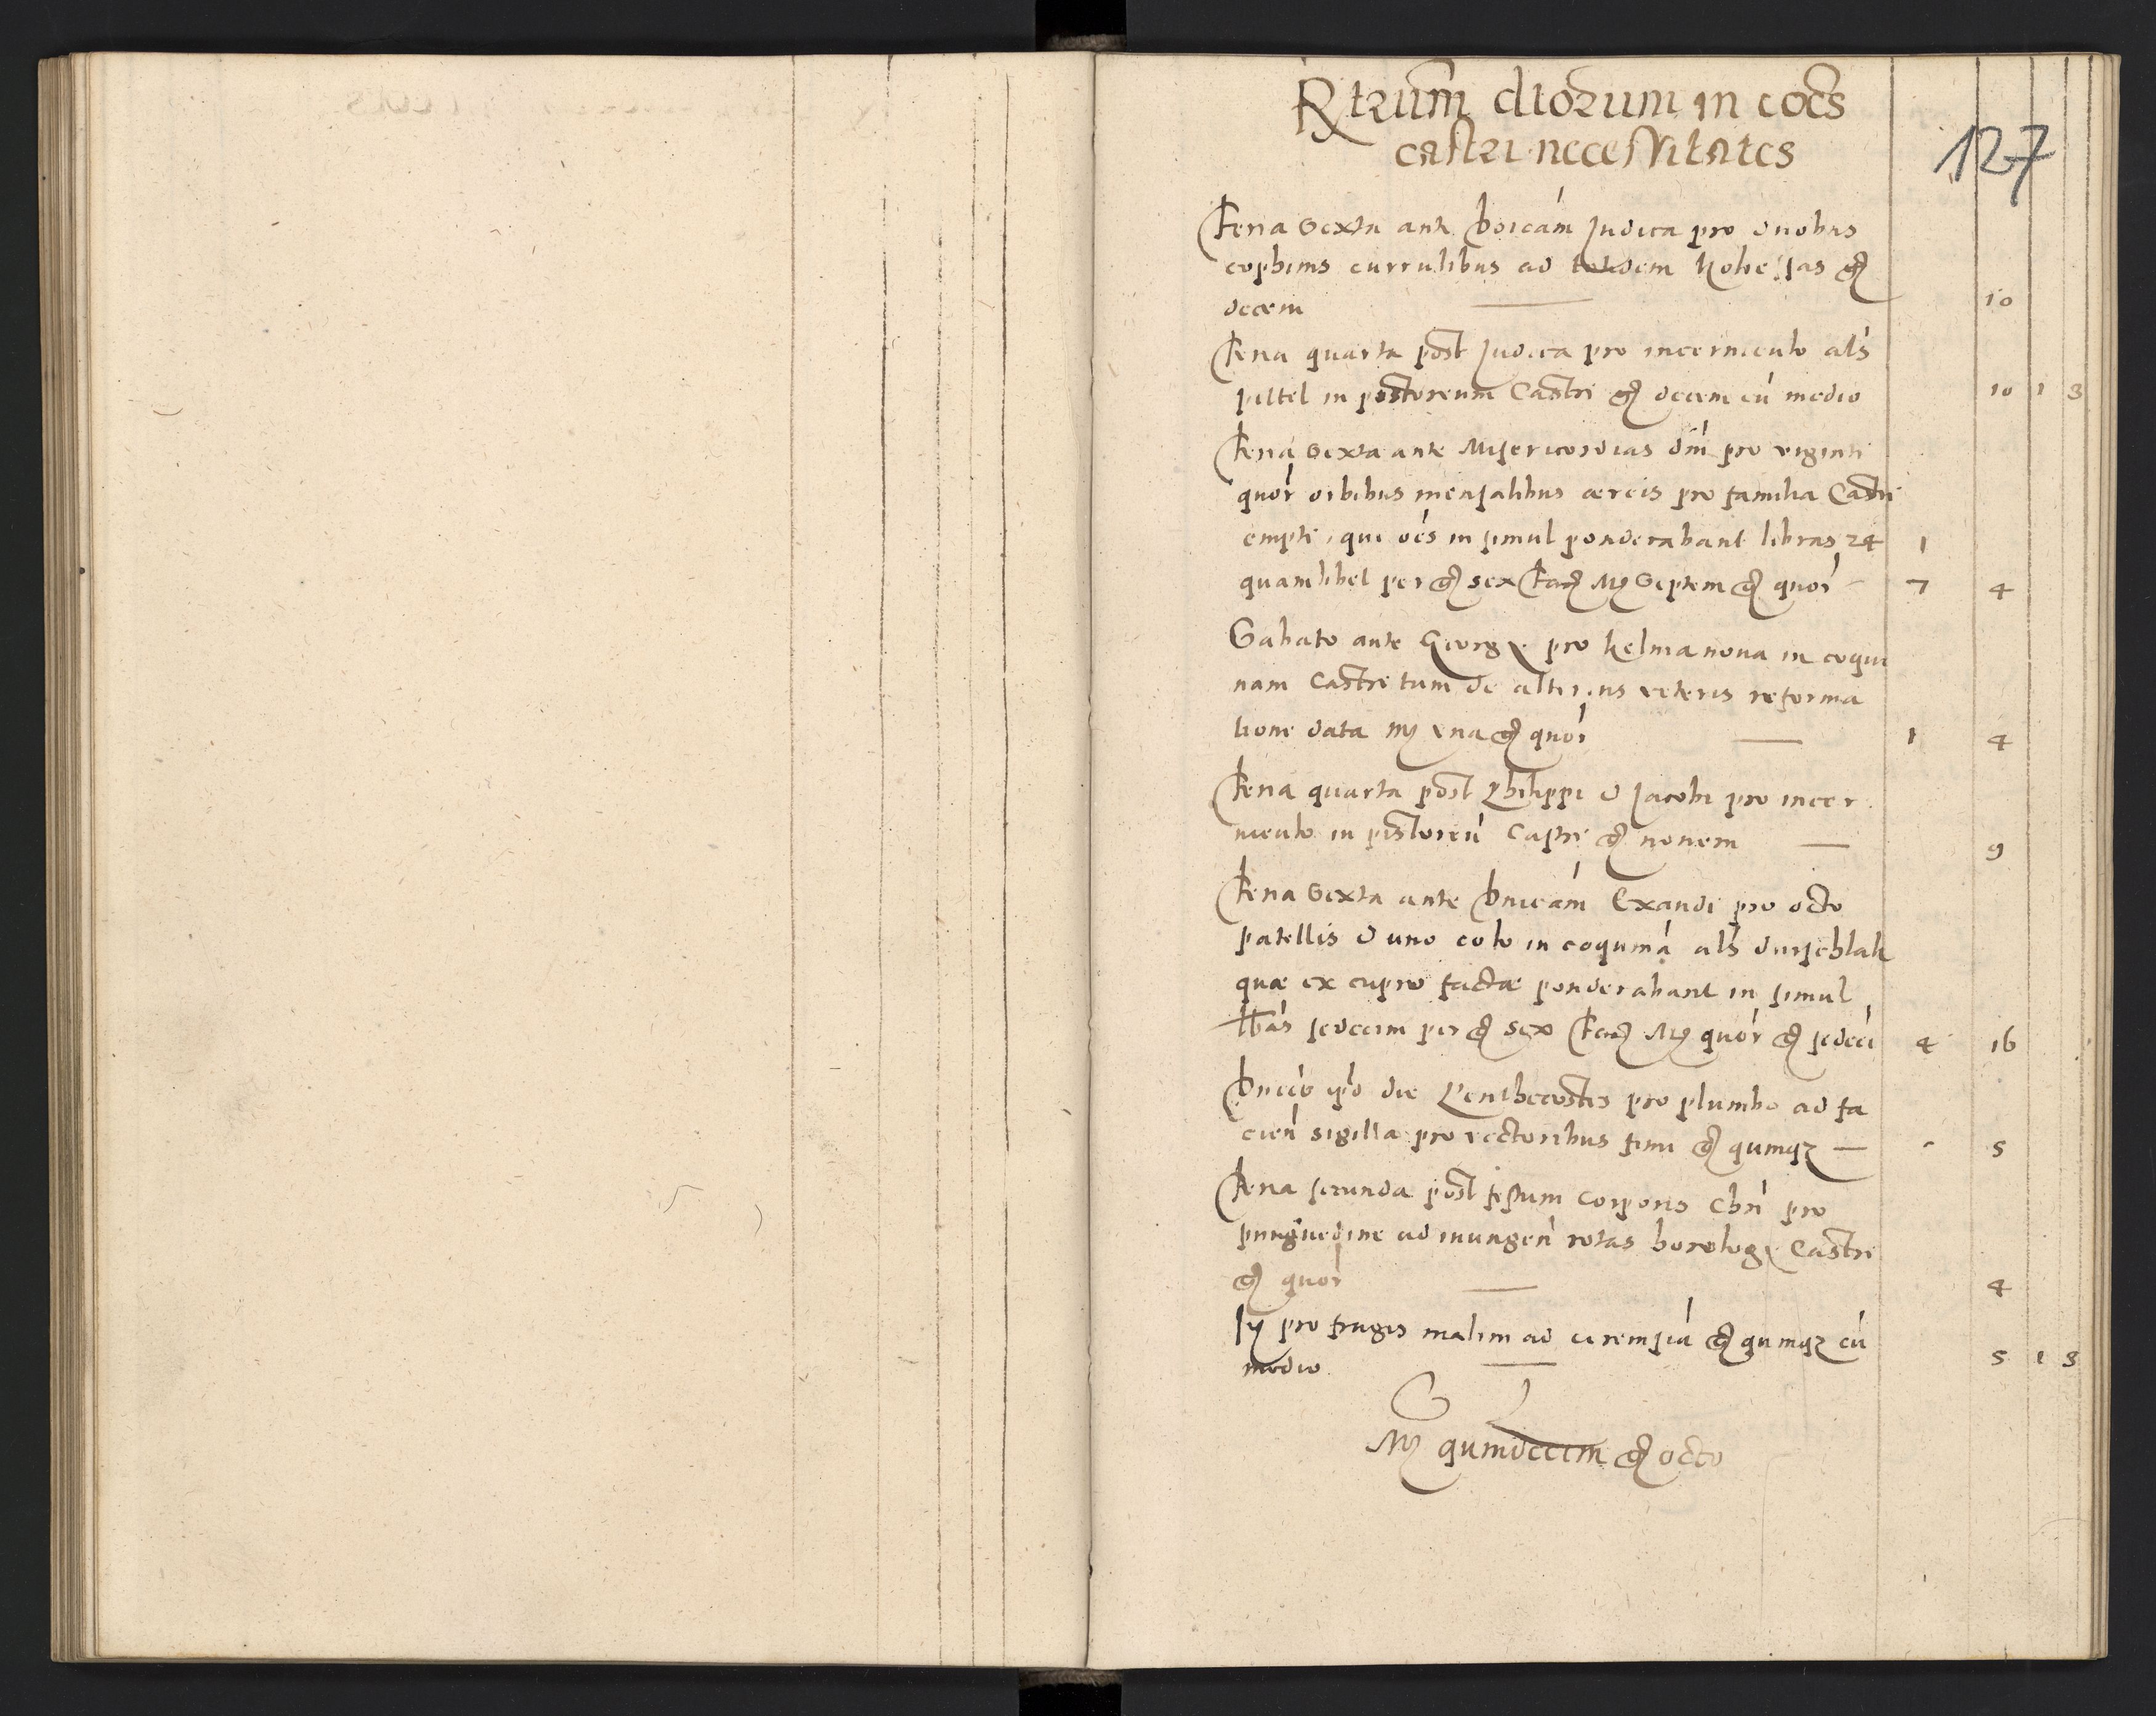 Rtrum diorum in cocs
castri necessitates
127
Feria Sexta ante Dnicam Judica pro duobus
cophinis currulibus ad totidem kolessas gr
decem 10
Feria quarta post Judica pro incerniculo als
piltel in pistoreum Castri gr decem cu medio 10 1 3
Feria Sexta ante Misericordias dni pro viginti
quor orbibus mensalibus aereis pro familia Castri
empti, qui oes in simul ponderabant libras 24 1
quamlibet per gr sex Fac Mr Septem gr quor 7 4
Sabato ante Georgy pro kelnia noua in coqui
nam Castri tum de alterius veteris reforma
tione data mr vna gr quor 1 4
Feria quarta post Philippi & Jacobi pro incer
niculo in pistoreu Castri gr nonem 9
Feria Sexta ante Dnicam Exaudi pro octo
patellis & uno colo in coquina als durschlak
quae ex cupro factae ponderabant in simul
lbas sedecim per gr sex Fac Mr quor gr sedeci 4 16
Dnico ipo die Penthecostes pro plumbo ad fa
cien sigilla pro vectoribus fimi gr quinqz 5
Feria secunda post festum Corporis Chri pro
pinguedine ad inungen rotas horology Castri
gr quor 4
It pro frugis malim ad ciremsia gr quinqz cu
medio 5 1 3
Mr quindecim gr octo